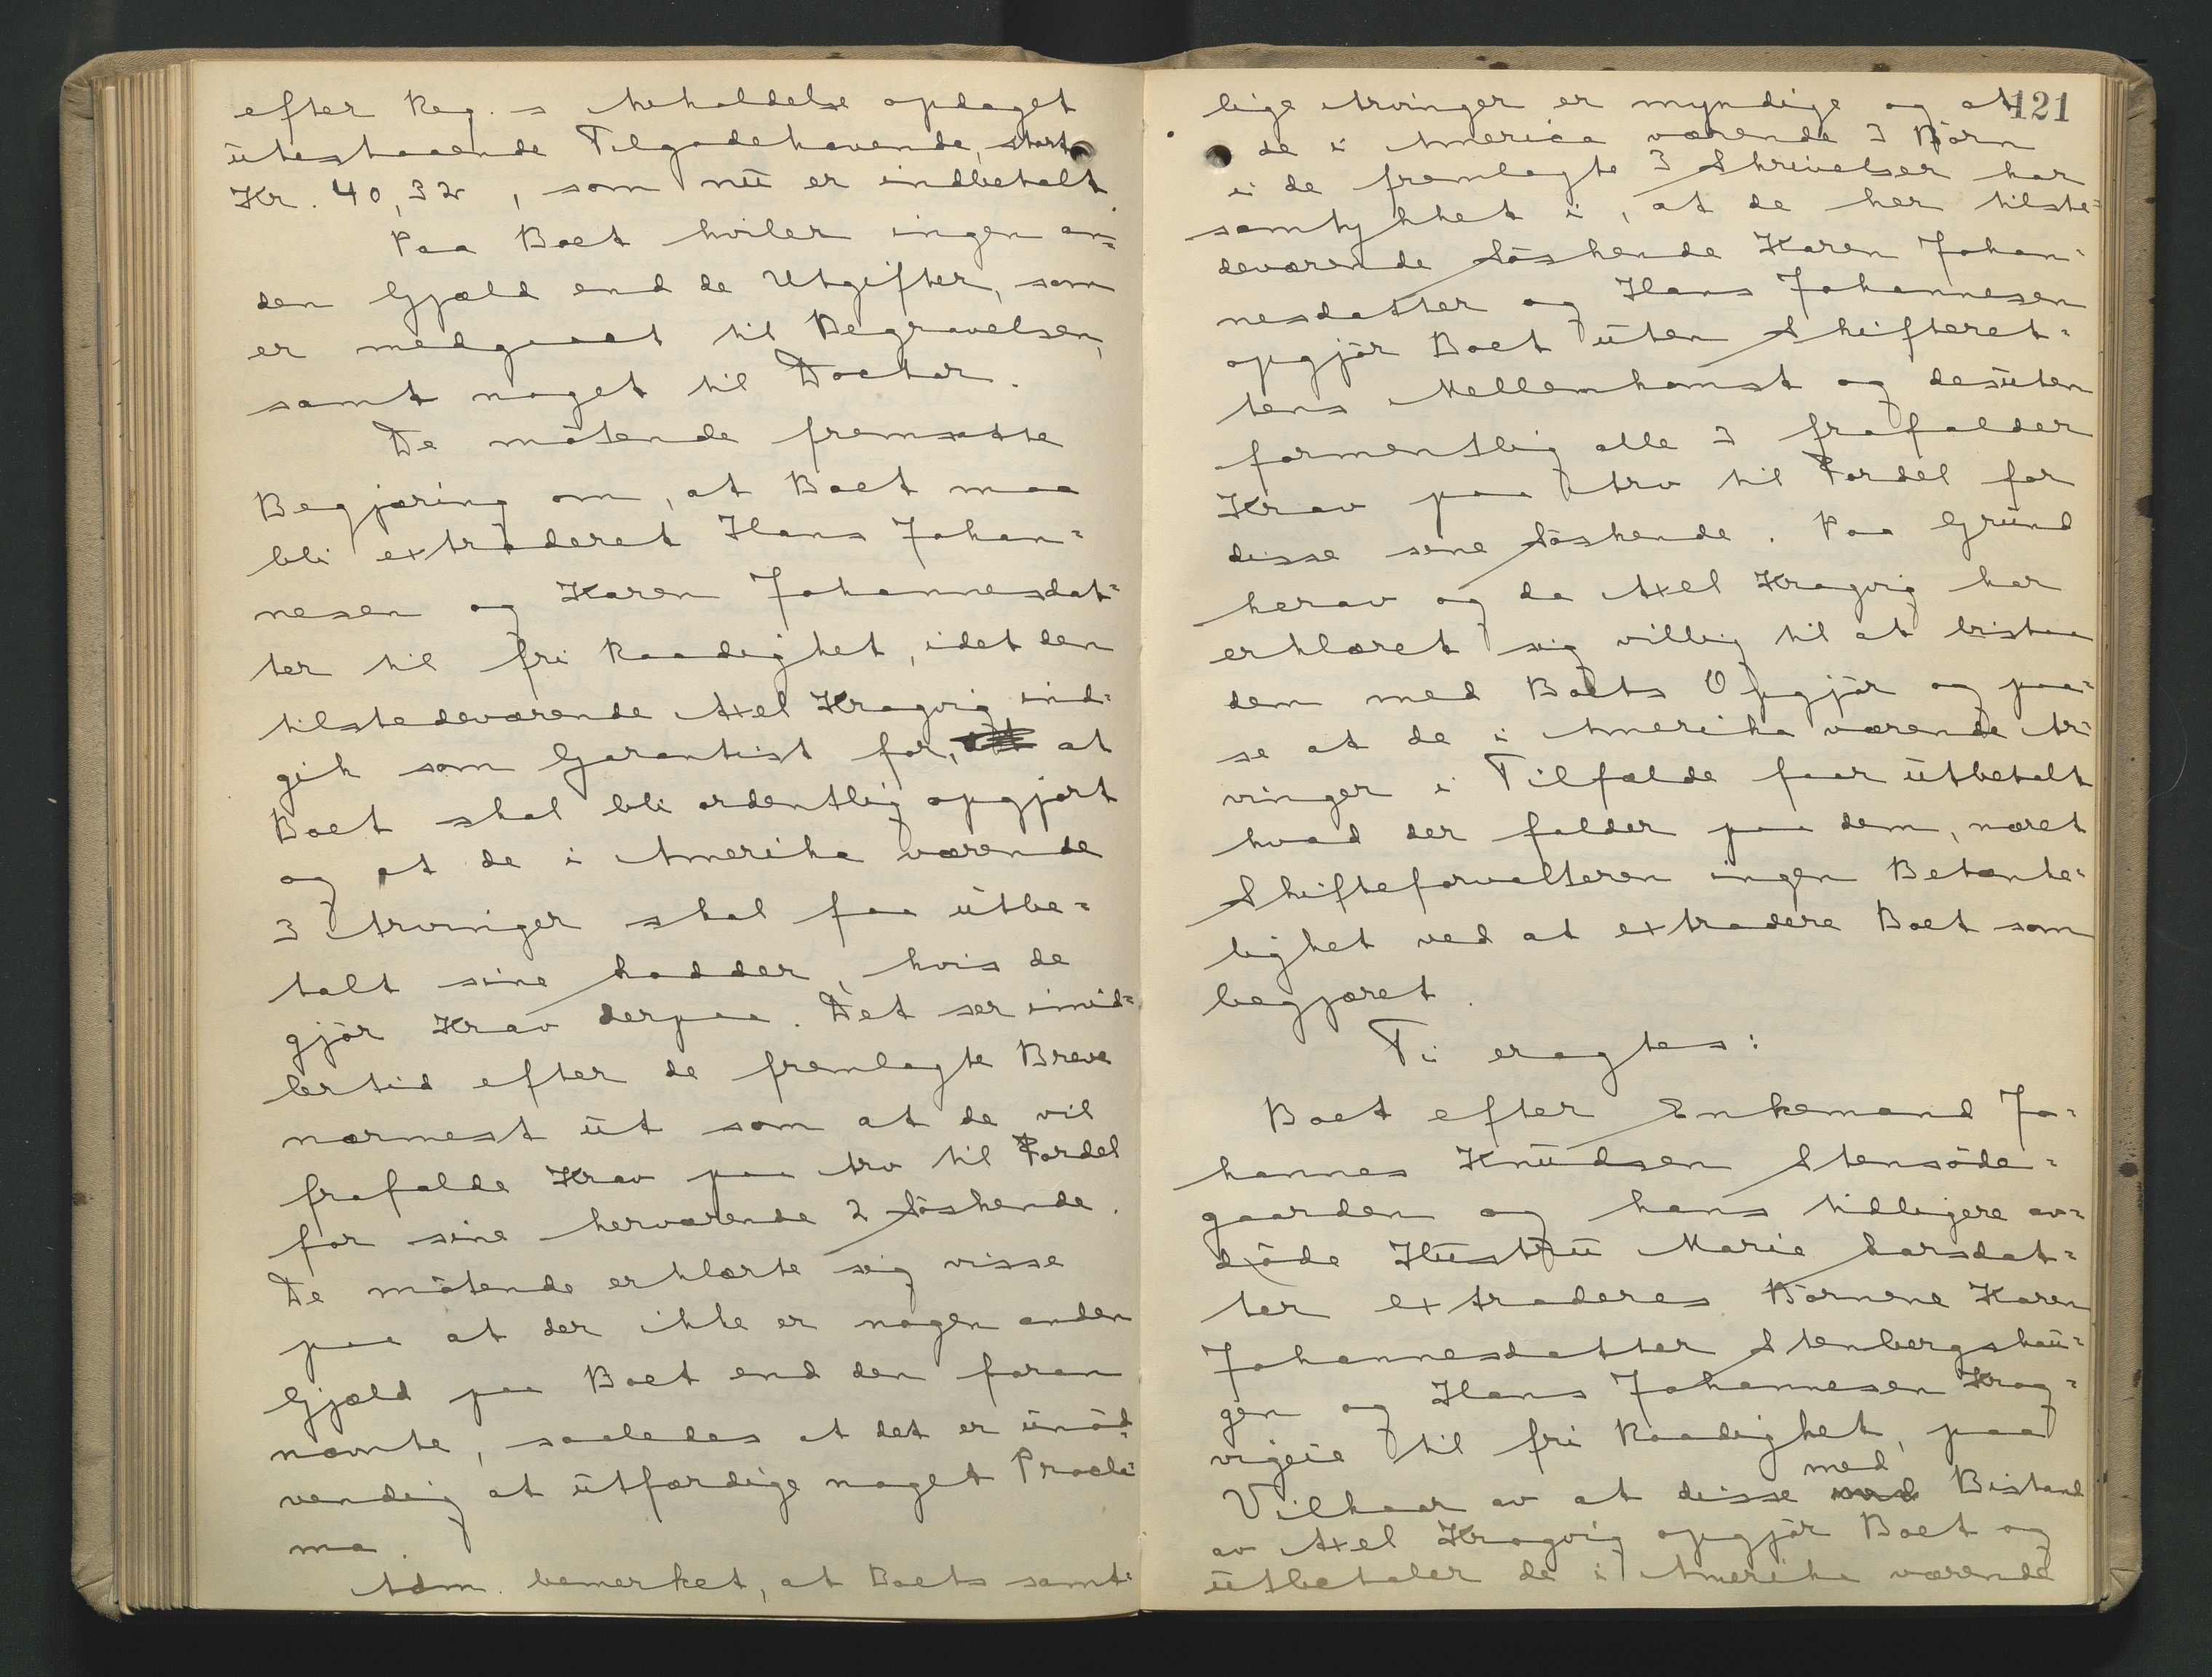 efter Reg.s beholdelse opdaget
utestaaende Tilgodehavende, stort
Kr. 40,32, som nu er indbetalt.
Paa Boet hviler ingen an=
den Gjæld end de Utgifter, som
er medgaaet til Begravelsen,
samt noget til Doctor.
De mötende fremsatte
Begjæring om, at Boet maa
bli extraderet Hans Johan=
nesen og Karen Johannesdat=
ter til fri Raadighet, idet den
tilstedeværende Axel Kragvig ind=
gik som Garantist for, at
Boet skal bli ordentlig opgjort
og at de i Amerika værende
3 Arvinger skal faa utbe=
talt sine Lodder, hvis de
gjör Krav derpaa. Det ser imid=
lertid efter de fremlagte Breve
nærmest ut som at de vil
frafalde Krav paa Arv til Fordel
for sine herværende 2 Söskende.
De mötende erklærte sig visse
paa at der ikke er nogen anden
Gjæld paa Boet end den foran
nævnte, saaledes at det er unöd=
vendig at utfærdige noget Procla=
ma.
Adm. bemerket, at Boets samt=
121
lige Arvinger er myndige og at
de i America værende 3 Börn
i de fremlagte 3 Skrivelser har
samtykket i, at de her tilste=
deværende Söskende Karen Johan=
nesdatter og Hans Johannesen
opgjör Boet uten Skifteret=
tens Mellemkomst og desuten
formentlig alle 3 frafalder
Krav paa Arv til Fordel for
disse sine Söskende. Paa Grund
herav og da Axel Kragvig har
erklæret sig villig til at bistaa
dem med Boets Opgjör og paa=
se at de i Amerika værende Ar=
vinger i Tilfælde faar utbetalt
hvad der falder paa dem, næret
Skifteforvalteren ingen Betænke=
lighet ved at extradere Boet som
begjæret.
Ti eragtes:
Boet efter Enkemand Jo=
hannes Knudsen Stensöde=
gaarden og hans tidligere av=
döde Hustru Marie Larsdat=
ter extraderes Börnene Karen
Johannesdatter Stenbergshau=
gen og Hans Johannesen Krag=
vigeie til fri Raadighet, paa
Vilkaar av at disse med Bistand
av Axel Kragvig opgjör Boet og
utbetaler de i Amerika værende